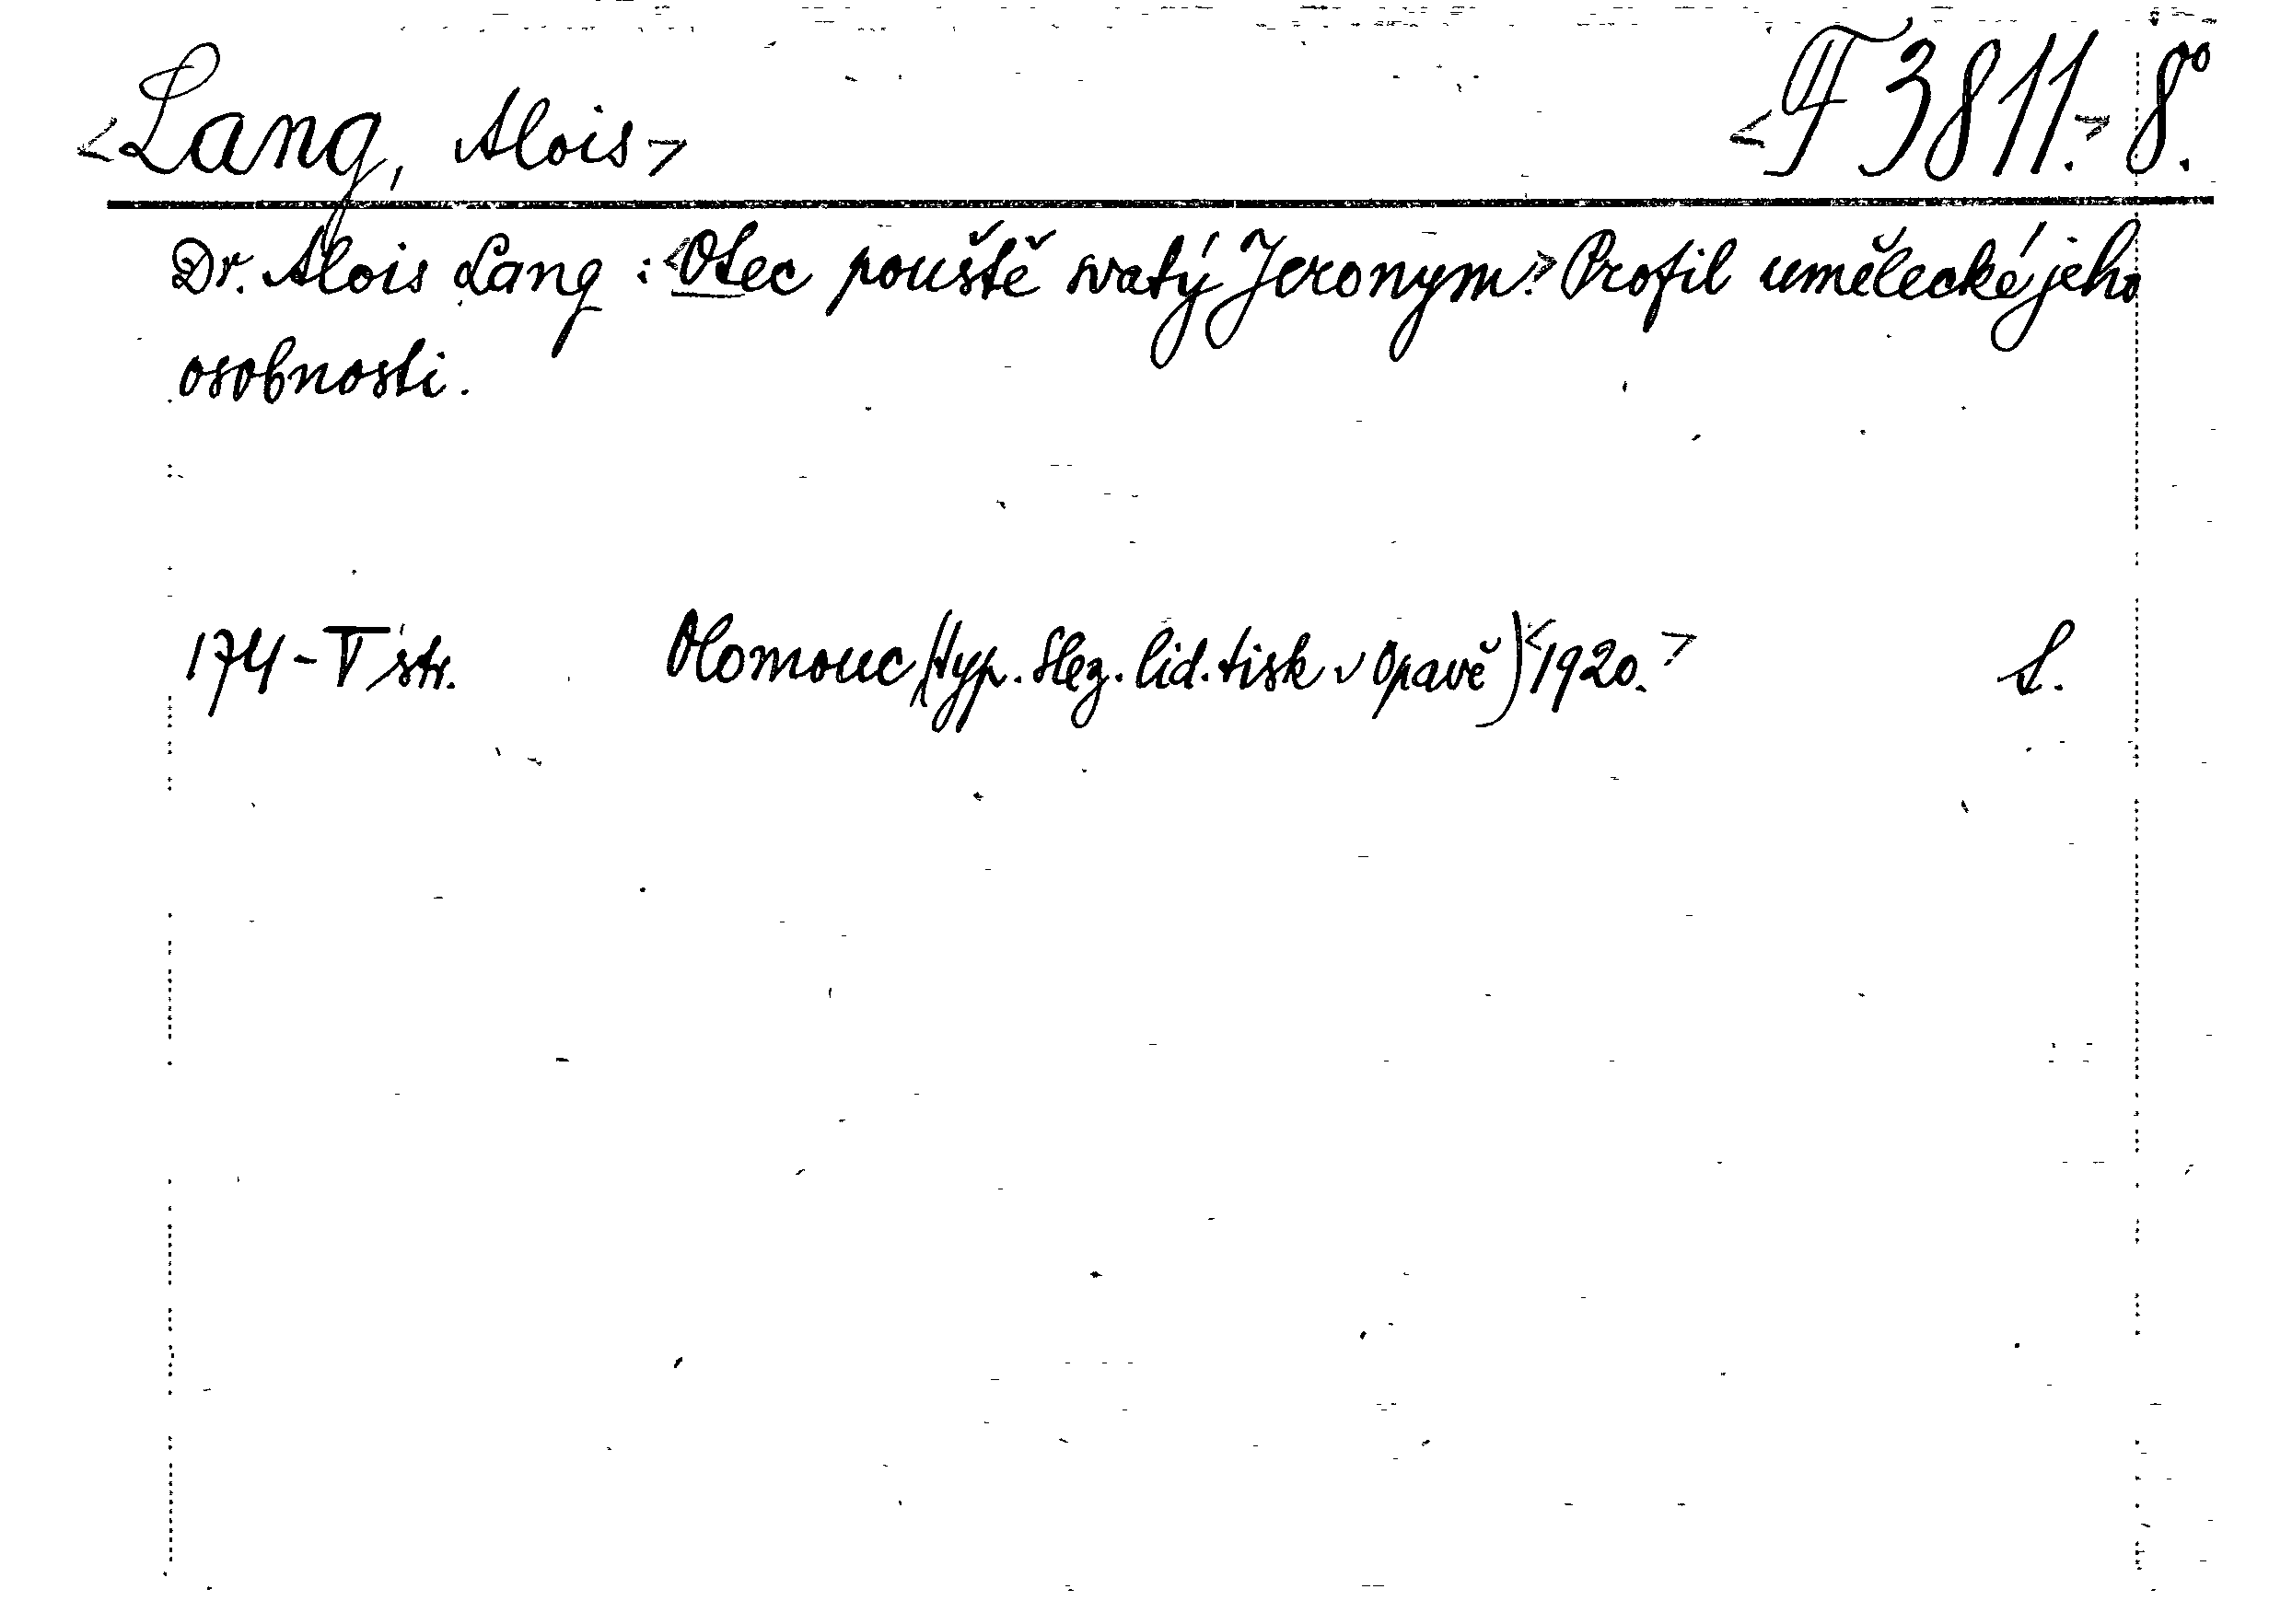 <Lang, Alois> <F 3811.> 8°.
Dr. Alois Lang : <Otec pouště svatý Jeronym.> Profil umělecké jeho
osobnosti.
174-V str. Olomouc (typ. Slez. lid. tisk v Opavě) <1920.> L.